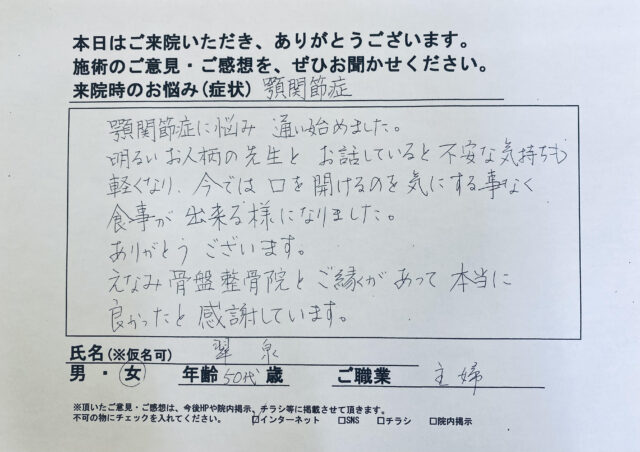 本日はご来院いただき、ありがとうございます。
施術のご意見・ご感想を、ぜひお聞かせください。
来院時のお悩み(症状) 顎関節症
顎関節症に悩み 通い始めました。
明るいお人柄の先生と お話していると 不安な気持ちも
軽くなり、今では 口を開けるのを気にする事なく
食事が 出来る様になりました。
ありがとう ございます。
えなみ骨盤整骨院と ご縁が あって 本当に
良かったと 感謝しています。
氏名(※仮名可) 翠 泉
男・女 年齢 50代 歳 ご職業 主婦
※頂いたご意見・ご感想は、今後HPや院内掲示、チラシ等に掲載させて頂きます。
不可の物にチェックを入れてください。 □インターネット □SNS □チラシ □院内掲示